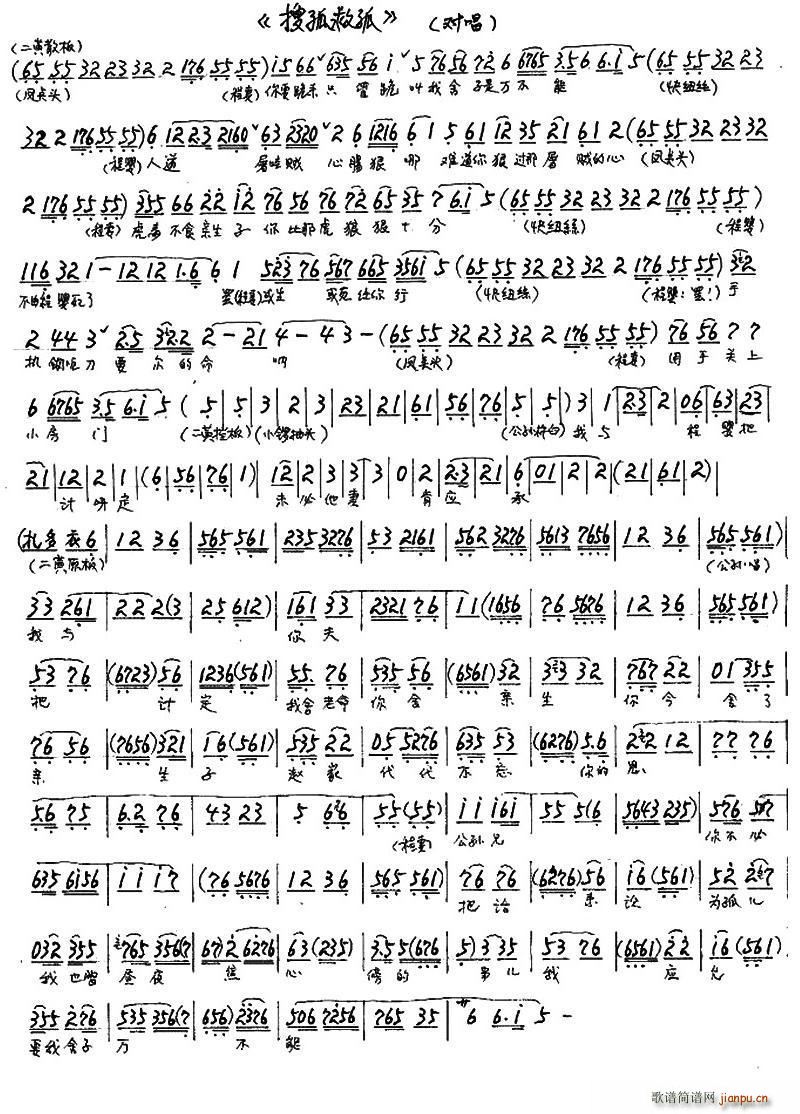 《搜孤救孤》 (对唱)
(二黄散板)
(65 55 32 23 32 2 176 55 55) i5 66 635 56 i 5 76 56 72 6 6765 3.5 6 6.i 5 (65 55 32 23
(凤点头) (程妻) 你要跪来只管跪叫我舍子是万不能 (快纽丝)
32 2 176 55 55) 6 12 2.3 2160 63 2320 2 6 1216 6 1 5 61 12 35 21 61 2 (65 55 32 23 32
(程婴) 人道屠贼心肠狠哪难道你狠过那屠贼的心 (凤点头)
2 176 55 55) 355 66 22 12 76 56 76 72 65 35 7 6.i 5 (65 55 32 23 32 2 176 55 55)
(程妻) 虎毒不食亲生子你比那虎狼狠十分 (快纽丝) (程婴)
116 32 1 - 12 12 1.6 6 1 523 76 567 665 3561 5 (65 55 32 23 32 2 176 55 55) 32
(快纽丝) (程婴:罢!) 手
2 44 3 2.5 32.2 2 - 21 4 - 43 - (65 55 32 23 32 2 176 55 55) 76 56 7 7
执钢刀要尔的命哪 (凤点头) (程妻) 用手关上
6 6765 3.5 6.i 5 (5 5 3 2 3 23 21 61 56 76 5 5) 3 1 2.3 2 06 63 23
小房门 (二黄摇板) (小锣抽头) (公孙杵白) 我与程婴把
21 12 2 1 (6 56 76 1) 12 2 3 3 3 0 2 2.3 21 6 01 2 2 (21 61 2)
计定未必他妻肯应承
6 12 36 565 561 235 3276 53 2161 562 3276 5613 7656 12 36 565 561)
(二黄原板) (公孙唱)
33 261 22 2(3 25 612) 161 33 2321 76 11 (1656 76 5676 12 36 565 561)
我与你夫
53 76 (6723) 56 1236 (561) 55. 76 535 56 (6561) 32 33 32 767 22 01 355
把计定我舍老命你舍亲生你今舍了
76 56 (7656) 321 16 (561) 535 22 05 5276 635 53 (6276) 5.6 22 12 77 76
亲生子赵家代代不忘你的恩
56 75 6.2 76 43 23 5 62 55 (55) i i i6i 55 5(6 5643 235) 576 57
(程妻) 公孙兄你不必
635 6i56 i i i7 (76 5676 12 36 565 561) 76 76 (6276) 56 i6 (561) 52 27
把话来论为孤儿
032 355 765 356(7 67) 2 6276 63 (235) 3.55 (676 5) 3 35 53 76 (6561) 22 i6 (561)
我也曾昼夜焦心情的事儿我应允
355 276 535 356(7 656) 2376 506 7256 765 35 6 6.i 5 -
要我舍子万不能
歌谱简谱网
jianpu.cn